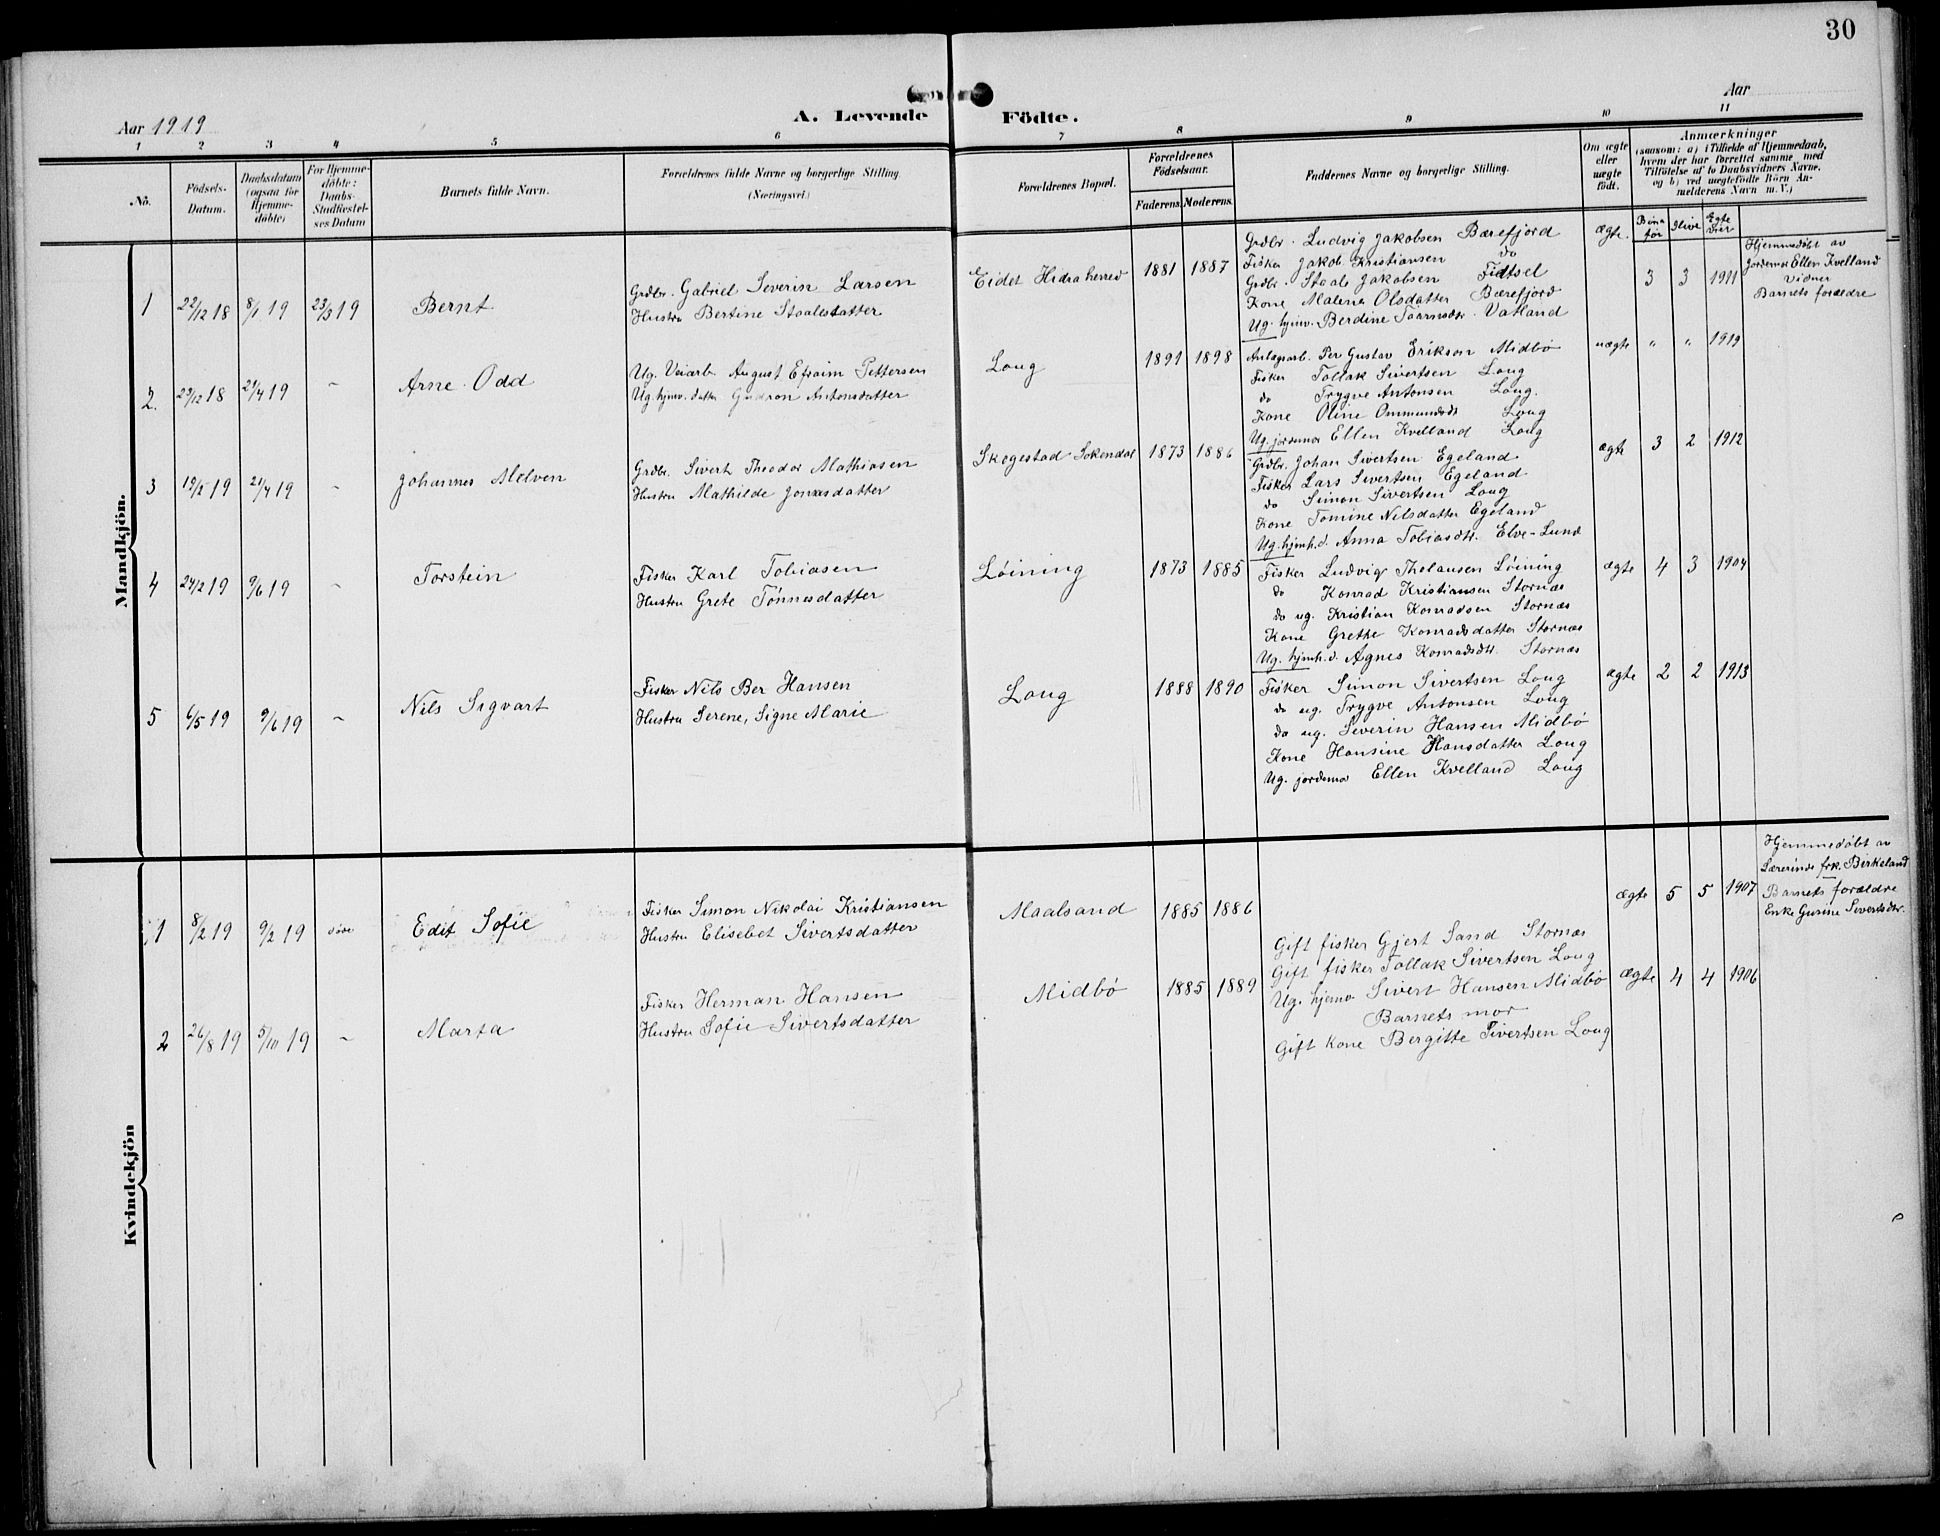 30
Aar 1919
A. Levende Födte.
Aar
1 2 3 4 5 6 7 8 9 10 11
No.
Födsels-Datum.
Daabsdatum (ogsaa for Hjemme-döbte)
For Hjemme-döbte: Daabs-Stadfæstel-ses Datum
Barnets fulde Navn.
Forældrenes fulde Navne og borgerlige Stilling (Næringsvei.)
Forældrenes Bopæl.
Forældrenes Födselsaar.
Faderens. Moderens.
Faddernes Navne og borgerlige Stilling.
Om ægte eller uægte födt.
Anmærkninger
(saasom: a) i Tilfælde af Hjemmedaab, hvem der har forrettet samme med Tilföielse af to Daabsvidners Navne. og b) ved uægtefödte Börn An-melderens Navn m. V.)
Børn før Ilive Egte viet
Mandkjön.
1 22/12 18 8/1 19 23/3 19 Bernt
Grdbr. Gabriel Severin Larsen
Hustru Bertine Staalesdatter
Eidet Hidra herred 1881 1887
Grdbr. Ludvig Jakobsen Bærefjord
Fisker Jakob Kristiansen do
Grdbr. Staale Jakobsen Fidtsel
Kone Malene Olsdatter Bærefjord
Ug. hjmv. Berdine Vatland
ægte. 3 3 1911
Hjemmedöbt av
Jordemor Ellen Kvelland
Vidner
Barnets forældre
2. 23/12 18 21/4 19 - Arne Odd
Ug. Veiarb. August Efraim Pettersen
Ug. hjmv. datter Gudron Antonsdatter
Loug 1891 1898
Anlægsarb. Per Gustav Erikson Midbö
Fisker Tollak Sivertsen Loug
do Trygve Antonsen Loug.
Kone Oline Ommundsdt Loug
Ug. jordemor Ellen Kvelland Loug
uægte " " 1919
3 19/2 19 21/4 19 - Johannes Melven
Grdbr. Sivert Theodor Mathiasen
Hustru Mathilde Jonasdatter
Skogestad Sokendal 1873 1886
Grdbr. Johan Sivertsen Egeland
Fisker Lars Sivertsen Egeland
do Simon Sivertsen Loug
Kone Tomine Nilsdatter Egeland
Ug. hjmh. d. Anna Tobiasdtr. Elve-Lund
ægte 3 2 1912
4 24/2 19 9/6 19 - Torstein
Fisker Karl Tobiasen
Hustru Grete Tönnesdatter
Löining 1873 1885
Fisker Ludvig Tholausen Löining
do Konrad Kristiansen Stornæs
do ug. Kristian Konradsen Stornæs
Kone Grethe Konradsdatter Stornæs
Ug. hjmh. d. Agnes Konradsdtr. Stornæs
ægte 4 3 1904
5 6/5 19 9/6 19 - Nils Sigvart
Fisker Nils Ber Hansen
Hustru Serene, Signe Marie
Loug 1888 1890
Fisker Simon Sivertsen Loug
do ug. Trygve Antonsen Loug
do ug. Severin Hansen Midbö
Kone Hansine Hansdatter Loug
Ug. jordemor Ellen Kvelland Loug
ægte 2 2 1913
Kvindekjön
1 8/2 19 9/2 19 döde Edit Sofie
Fisker Simon Nikolai Kristiansen
Hustru Elisebet Sivertsdatter
Maalsand 1885 1886
ægte 5 5 1907
Hjemmedöbt av
Lærerinde frk. Birkeland
Barnets forældre
Enke Gurine Sivertsdtr.
2 26/8 19 5/10 19 - Marta
Fisker Herman Hansen
Hustru Sofie Sivertsdatter
Midbö 1885 1889
Gift fisker Gjert Sand Stornæs
Gift fisker Tollak Sivertsen Loug
Ug. hjemv Sivert Hansen Midbö
Barnets mor
Gift Kone Bergitte Sivertsen Loug
ægte 4 4 1906